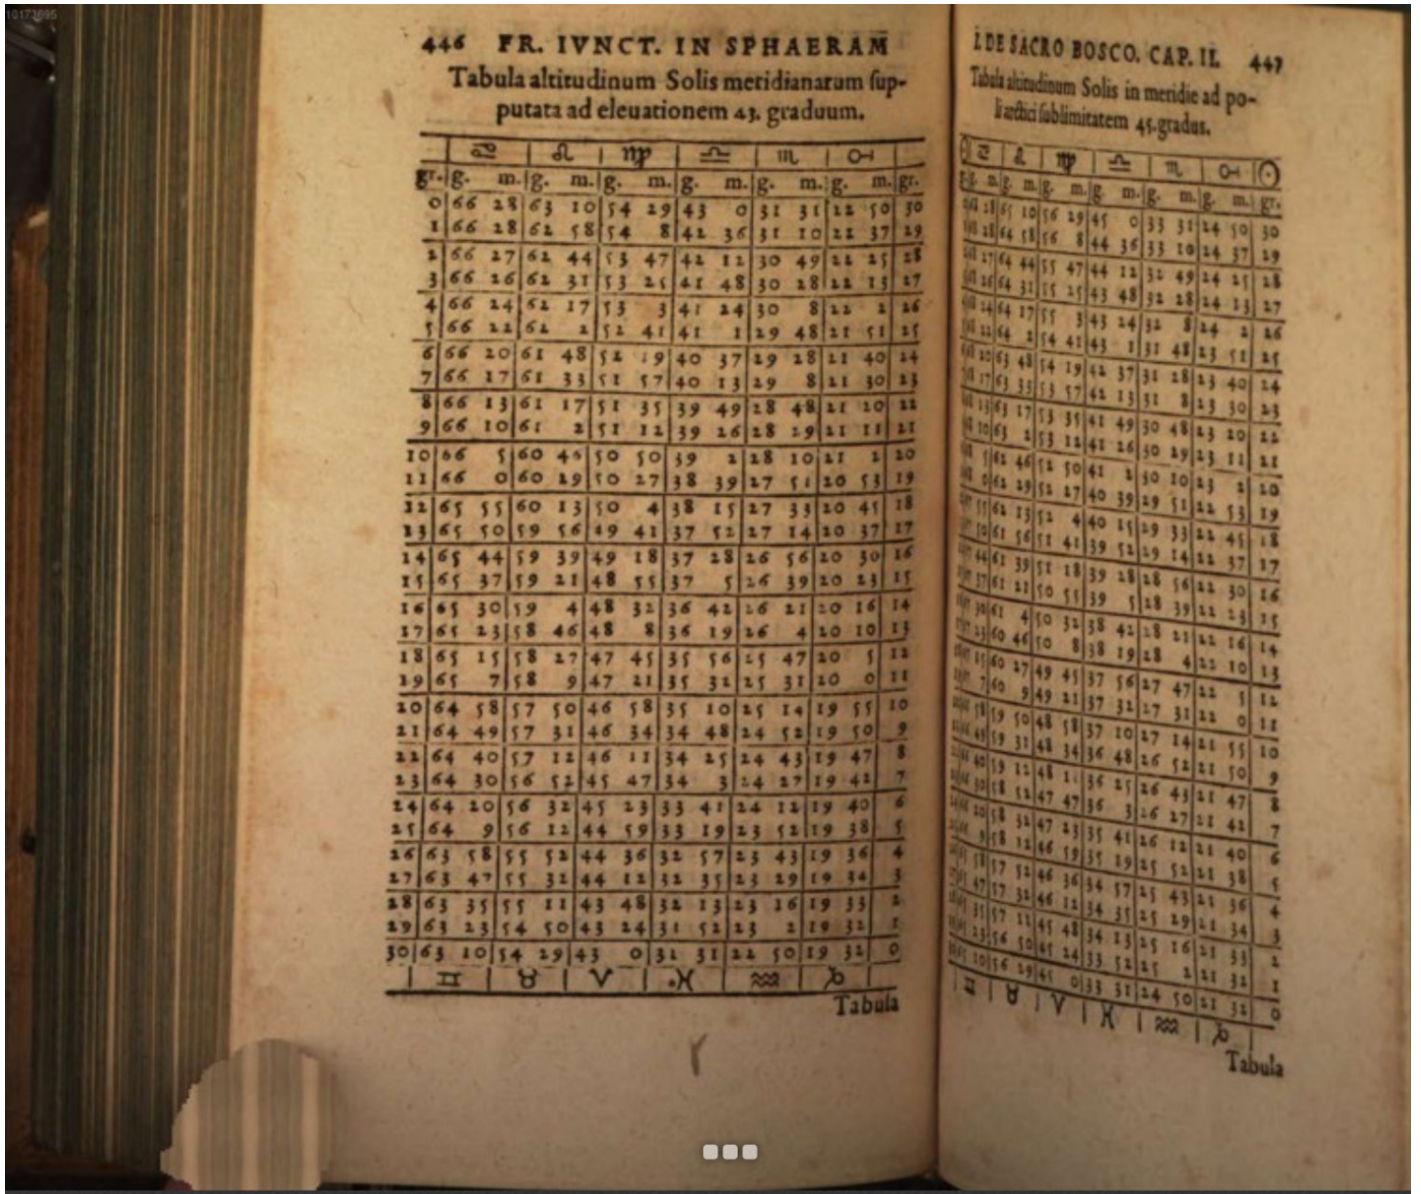 10173695
446 FR. IVNCT. IN SPHAERAM
Tabula altitudinum Solis meridianarum ſup-
putata ad eleuationem 43. graduum.
♋ ♌ ♍ ♎ ♏ ♐
gr. g. m. g. m. g. m. g. m. g. m. g. m. gr.
0 66 28 63 10 54 29 43 0 31 31 22 50 30
1 66 28 62 58 54 8 42 36 31 10 22 37 29
2 66 27 62 44 53 47 42 12 30 49 22 25 28
3 66 26 62 31 53 25 41 48 30 28 22 13 27
4 66 24 62 17 53 3 41 24 30 8 22 2 26
5 66 22 62 2 52 41 41 1 29 48 21 51 25
6 66 20 61 48 52 19 40 37 29 28 21 40 24
7 66 17 61 33 51 57 40 13 29 8 21 30 23
8 66 13 61 17 51 35 39 49 28 48 21 20 22
9 66 10 61 2 51 12 39 26 28 29 21 11 21
10 66 5 60 46 50 50 39 2 28 10 21 2 20
11 66 0 60 29 50 27 38 39 27 51 20 53 19
12 65 55 60 13 50 4 38 15 27 33 20 45 18
13 65 50 59 56 49 41 37 52 27 14 20 37 17
14 65 44 59 39 49 18 37 28 26 56 20 30 16
15 65 37 59 21 48 55 37 5 26 39 20 23 15
16 65 30 59 4 48 32 36 42 26 21 20 16 14
17 65 23 58 46 48 8 36 19 26 4 20 10 13
18 65 15 58 27 47 45 35 56 25 47 20 5 12
19 65 7 58 9 47 21 35 32 25 31 20 0 11
20 64 58 57 50 46 58 35 10 25 14 19 55 10
21 64 49 57 31 46 34 34 48 24 52 19 50 9
22 64 40 57 12 46 11 34 25 24 43 19 47 8
23 64 30 56 52 45 47 34 3 24 27 19 42 7
24 64 20 56 32 45 23 33 41 24 12 19 40 6
25 64 9 56 12 44 59 33 19 23 52 19 38 5
26 63 58 55 52 44 36 32 57 23 43 19 36 4
27 63 47 55 32 44 12 32 35 23 29 19 34 3
28 63 35 55 11 43 48 32 13 23 16 19 33 2
29 63 23 54 50 43 24 31 52 23 2 19 32 1
30 63 10 54 29 43 0 31 31 22 50 19 32 0
♊ ♉ ♈ ♓ ♒ ♑
Tabula
I. DE SACRO BOSCO. CAP. II. 447
Tabula altitudinum Solis in meridie ad po-
li arctici ſublimitatem 45. gradus.
♋ ♌ ♍ ♎ ♏ ♐ ☉
g. m. g. m. g. m. g. m. g. m. g. m. gr.
28 65 10 56 29 45 0 33 31 24 50 30
28 64 58 56 8 44 36 33 10 24 37 29
27 64 44 55 47 44 12 32 49 24 25 28
26 64 31 55 25 43 48 32 28 24 13 27
24 64 17 55 3 43 24 32 8 24 2 26
22 64 2 54 41 43 1 31 48 23 51 25
20 63 48 54 19 42 37 31 28 23 40 24
17 63 33 53 57 42 13 31 8 23 30 23
13 63 17 53 35 41 49 30 48 23 20 22
10 63 2 53 12 41 26 30 29 23 11 21
5 62 46 52 50 41 2 30 10 23 2 20
0 62 29 52 27 40 39 29 51 22 53 19
55 62 13 52 4 40 15 29 33 22 45 18
50 61 56 51 41 39 52 29 14 22 37 17
44 61 39 51 18 39 28 28 56 22 30 16
37 61 21 50 55 39 5 28 39 22 23 15
30 61 4 50 32 38 42 28 21 22 16 14
23 60 46 50 8 38 19 28 4 22 10 13
15 60 27 49 45 37 56 27 47 22 5 12
7 60 9 49 21 37 32 27 31 22 0 11
58 59 50 48 58 37 10 27 14 21 55 10
49 59 31 48 34 36 48 26 52 21 50 9
40 59 12 48 11 36 25 26 43 21 47 8
30 58 52 47 47 36 3 26 27 21 42 7
20 58 32 47 23 35 41 26 12 21 40 6
9 58 12 46 59 35 19 25 52 21 38 5
58 57 52 46 36 34 57 25 43 21 36 4
47 57 32 46 12 34 35 25 29 21 34 3
35 57 11 45 48 34 13 25 16 21 33 2
23 56 50 45 24 33 52 25 2 21 32 1
10 56 29 45 0 33 31 24 50 21 32 0
♊ ♉ ♈ ♓ ♒ ♑
Tabula